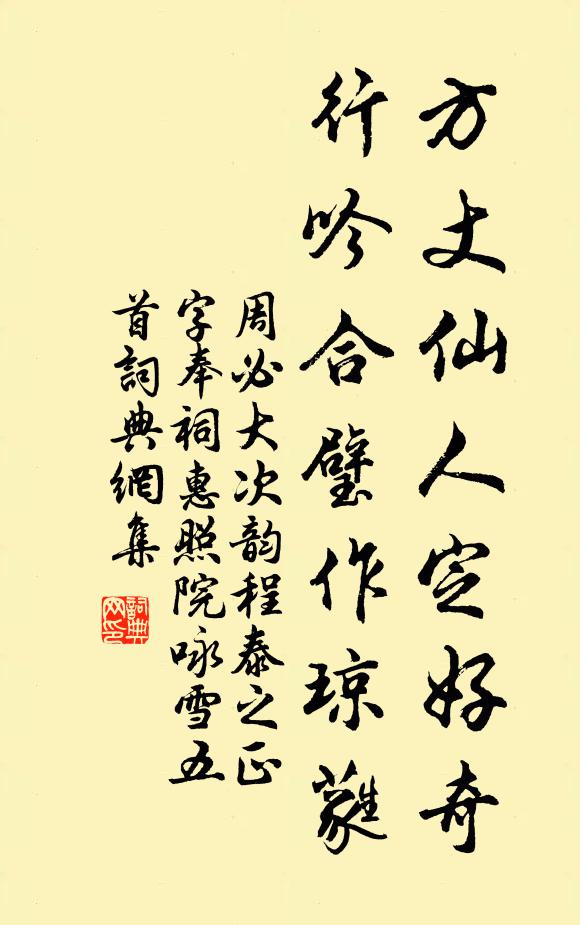 方丈仙人定好奇
行吟合璧作琼蕤
周必大次韵程泰之正
字奉祠惠照院咏雪五
首詞典網集
詞典
网印